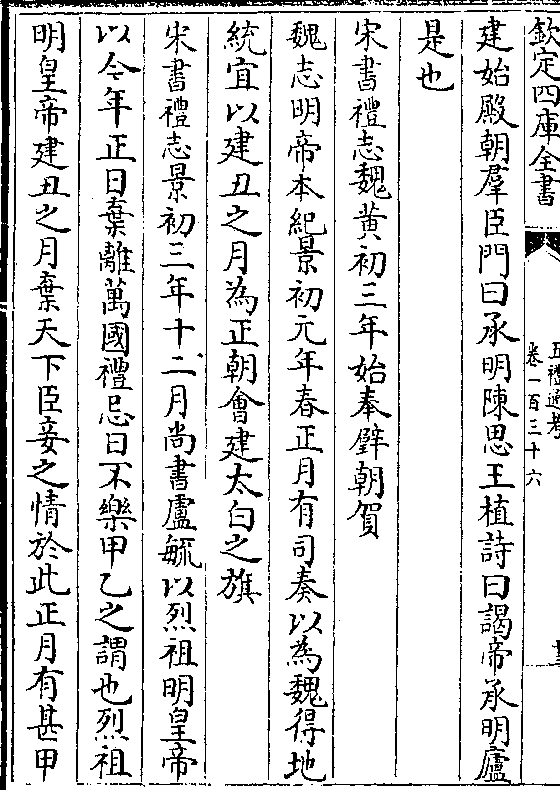 欽定四庫全書
五禮通考
卷一百三十六
建始殿朝羣臣門曰承明陳思王植詩曰謁帝承明廬
是也
宋書禮志魏黄初三年始奉璧朝賀
魏志明帝本紀景初元年春正月有司奏以為魏得地
統宜以建丑之月為正朝會建太白之旗
宋書禮志景初三年十二月尚書盧毓以烈祖明皇帝
以今年正日棄離萬國禮忌日不樂甲乙之謂也烈祖
明皇帝建丑之月棄天下臣妾之情於此正月有甚甲